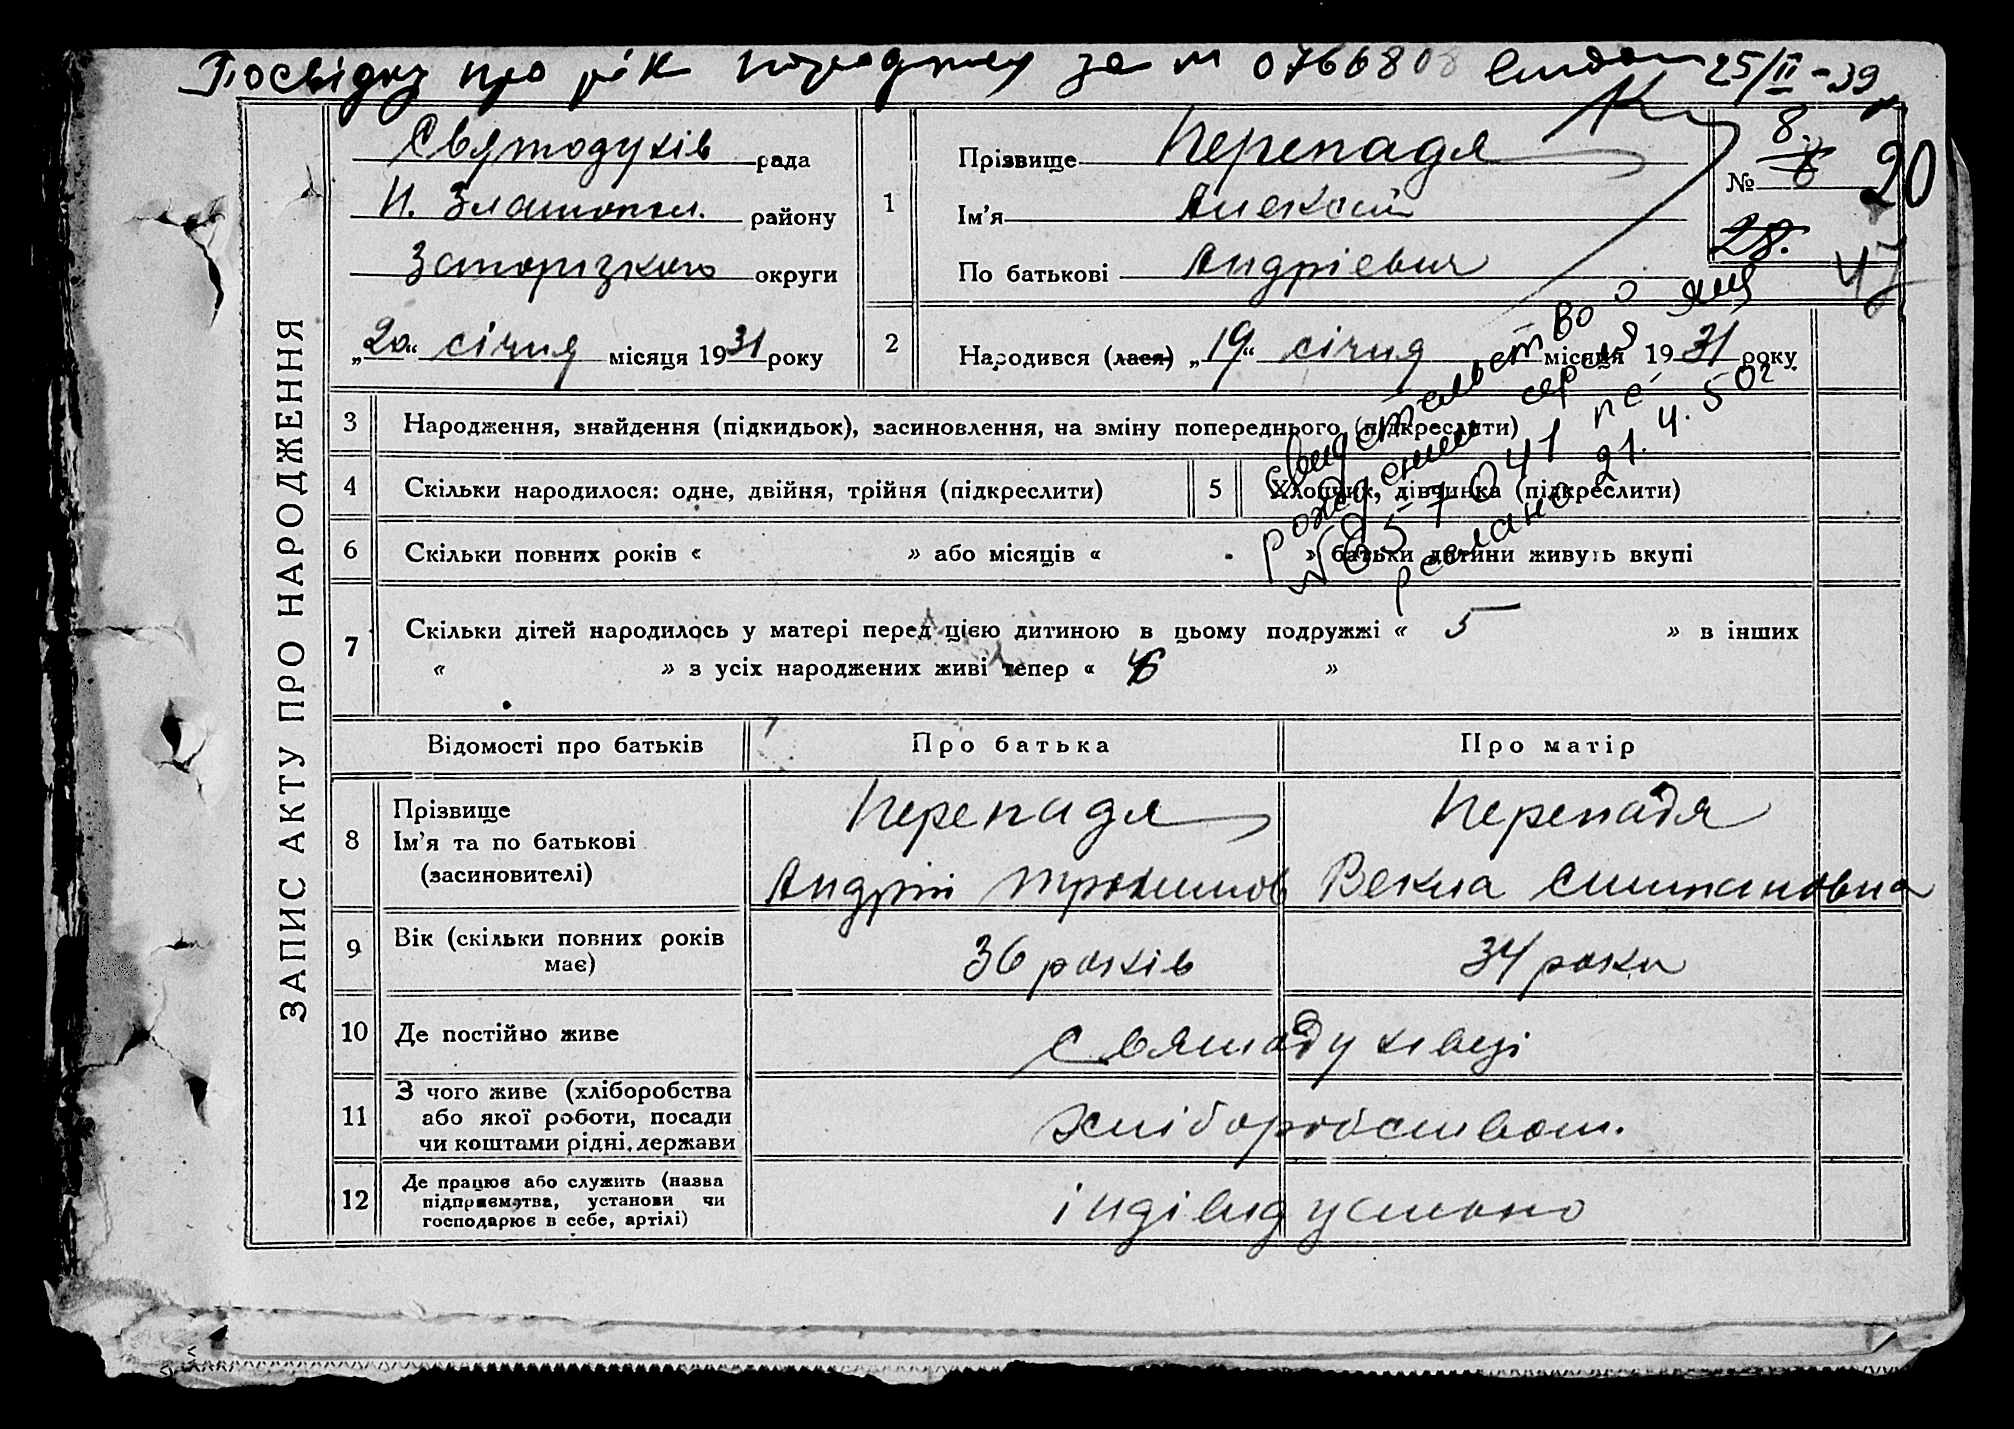 Посвідку про рік народження за № 0766808 видан 25/II-39
ЗАПИС АКТУ ПРО НАРОДЖЕННЯ
Святодухів рада
Н. Златопол. району
Запорізького округи
„20“ січня місяця 1931 року
1
Прізвище Перепадя
Ім'я Алексій
По батькові Андрієвич
№ 8
20
28.
2
Народився (лася) „19“ січня місяця 1931 року
Свидетельство о
рождении серия
№ 857041
послано 21.4.50г.
3 Народження, знайдення (підкидьок), засиновлення, на зміну попереднього (підкреслити)
4 Скільки народилося: одне, двійня, трійня (підкреслити)
5 Хлопчик, дівчинка (підкреслити)
6 Скільки повних років « » або місяців « » батьки дитини живуть вкупі
7 Скільки дітей народилось у матері перед цією дитиною в цьому подружжі « 5 » в інших
« » з усіх народжених живі тепер « 6 »
Відомості про батьків Про батька Про матір
8 Прізвище Перепадя Перепадя
Ім'я та по батькові
(засиновителі) Андрій Трохимов Векла Степановна
9 Вік (скільки повних років
має) 36 років 34 роки
10 Де постійно живе Святодухівці
11 З чого живе (хліборобства
або якої роботи, посади
чи коштами рідні, держави Хліборобством.
12 Де працює або служить (назва
підприємства, установи чи
господарює в себе, артілі) індівидуально